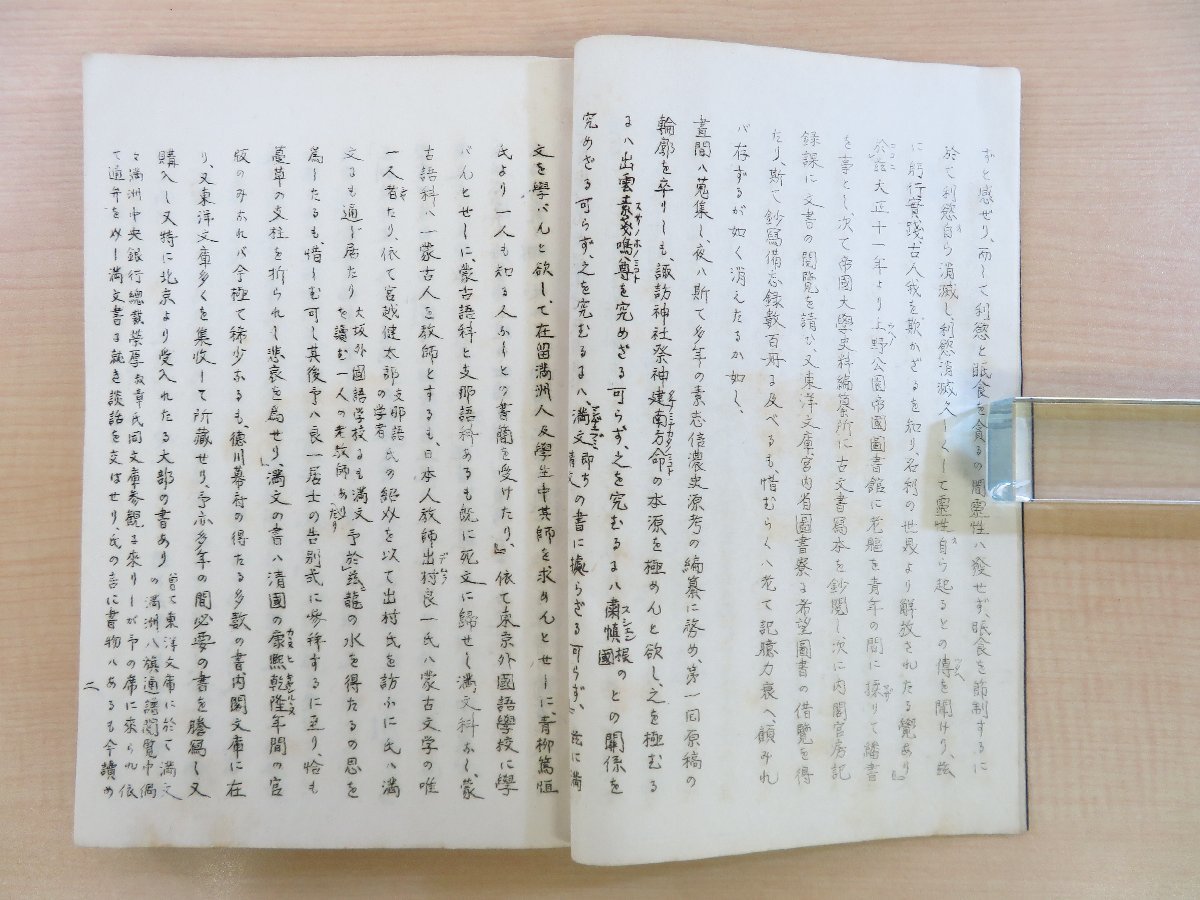 ずと感ぜり、而して利慾と眠食を貪るの間霊性ハ發せず、眠食を節制するに
於て利慾自ら消滅し、利慾消滅久しくして靈性自ら起るとの傳を聞けり、茲
に躬行實践古人我を欺かざるを知り名利の世界より解放されたる覺あり』
於茲大正十一年より上野公園帝國圖書館に老軀を青年の間に操りて繙書
を事とし次て帝國大學史料編纂所に古文書寫本を鈔閲し次に内閣官房記
録課に文書の閲覧を請ひ又東洋文庫宮内省圖書寮る希望圖書の借覽を得
たり、斯て鈔寫備忘録数百冊る及べるも惜むらくハ老て記臆力衰へ、顧みれ
バ存ずるが如く消えたるか如し、
晝間ハ蒐集し、夜ハ斯て多年の素志信濃史源考の編纂に啓め、第一回原稿の
輪廓を卒りしも、諏訪神社祭神建南方命の本源を極めんと欲し、之を極むる
るハ出雲素戔嗚尊を究めざる可らず、之を究むるるハ粛慎國との關係を
究めざる可らず、之を究むるるハ、満文即ち清文の書に據らざる可らず、茲に満
文を學バんと欲して、在留満洲人及學生中其師を求めんとせしに青柳篤恒
氏より一人も知る人ふしとの書簡を受けたり、』依て東京外國語學校に學
バんとせしに、蒙古語科と支那語科あるも既に死文に歸せし満文科ふし、蒙
古語科ハ一蒙古人を教師とするも、日本人教師出村良一氏ハ蒙古文学の唯
一人者たり、依て宮越健太郎支那語の学者氏の紹介を以て出村氏を訪ふに氏ハ満
文るも通じ居たり大坂外國語学校るも満文を讀む一人の老教師あたり予於茲龍の水を得たるの思を
為したるも、惜しむ可し其後予ハ良一居士の告別式に参拝するに至り、恰も
蔓草の支柱を折られし悲哀を為せり、』満文の書ハ清國の康熙乾隆年間の官
版のみふれバ今極て稀少ふるも、徳川幕府の得たる多数の書内閣文庫に在
り、又東洋文庫多くを集収して所藏せり、予亦多年の間必要の書を謄寫し又
購入し又特に北京より受入れたる大部の書あり曽て東洋文庫に於て満文の満洲八旗通譜閲覽中偶
々満洲中央銀行總裁榮厚章氏同文庫参觀る來りしが予の席に来られ依
て通弁を以し満文書る就き談話を交はせり、氏の言に書物ハあるも今讀め
二